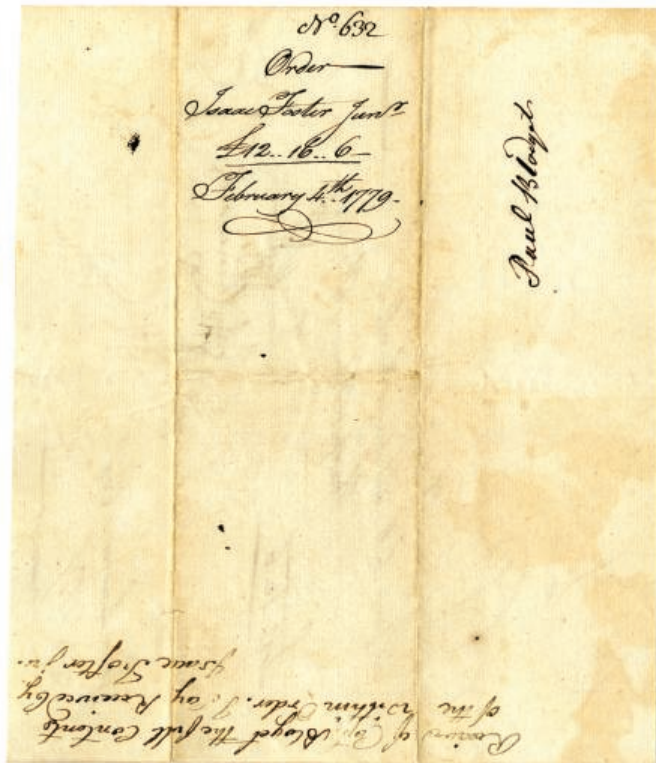 No. 632
Order
Isaac Foster Junr
£12.. 16.. 6
February 4.th 1779.
Paul Blodget
Received of Capt. Bloget the full Contents
of the Within Order. I say Received by
Isaac Foster jr.